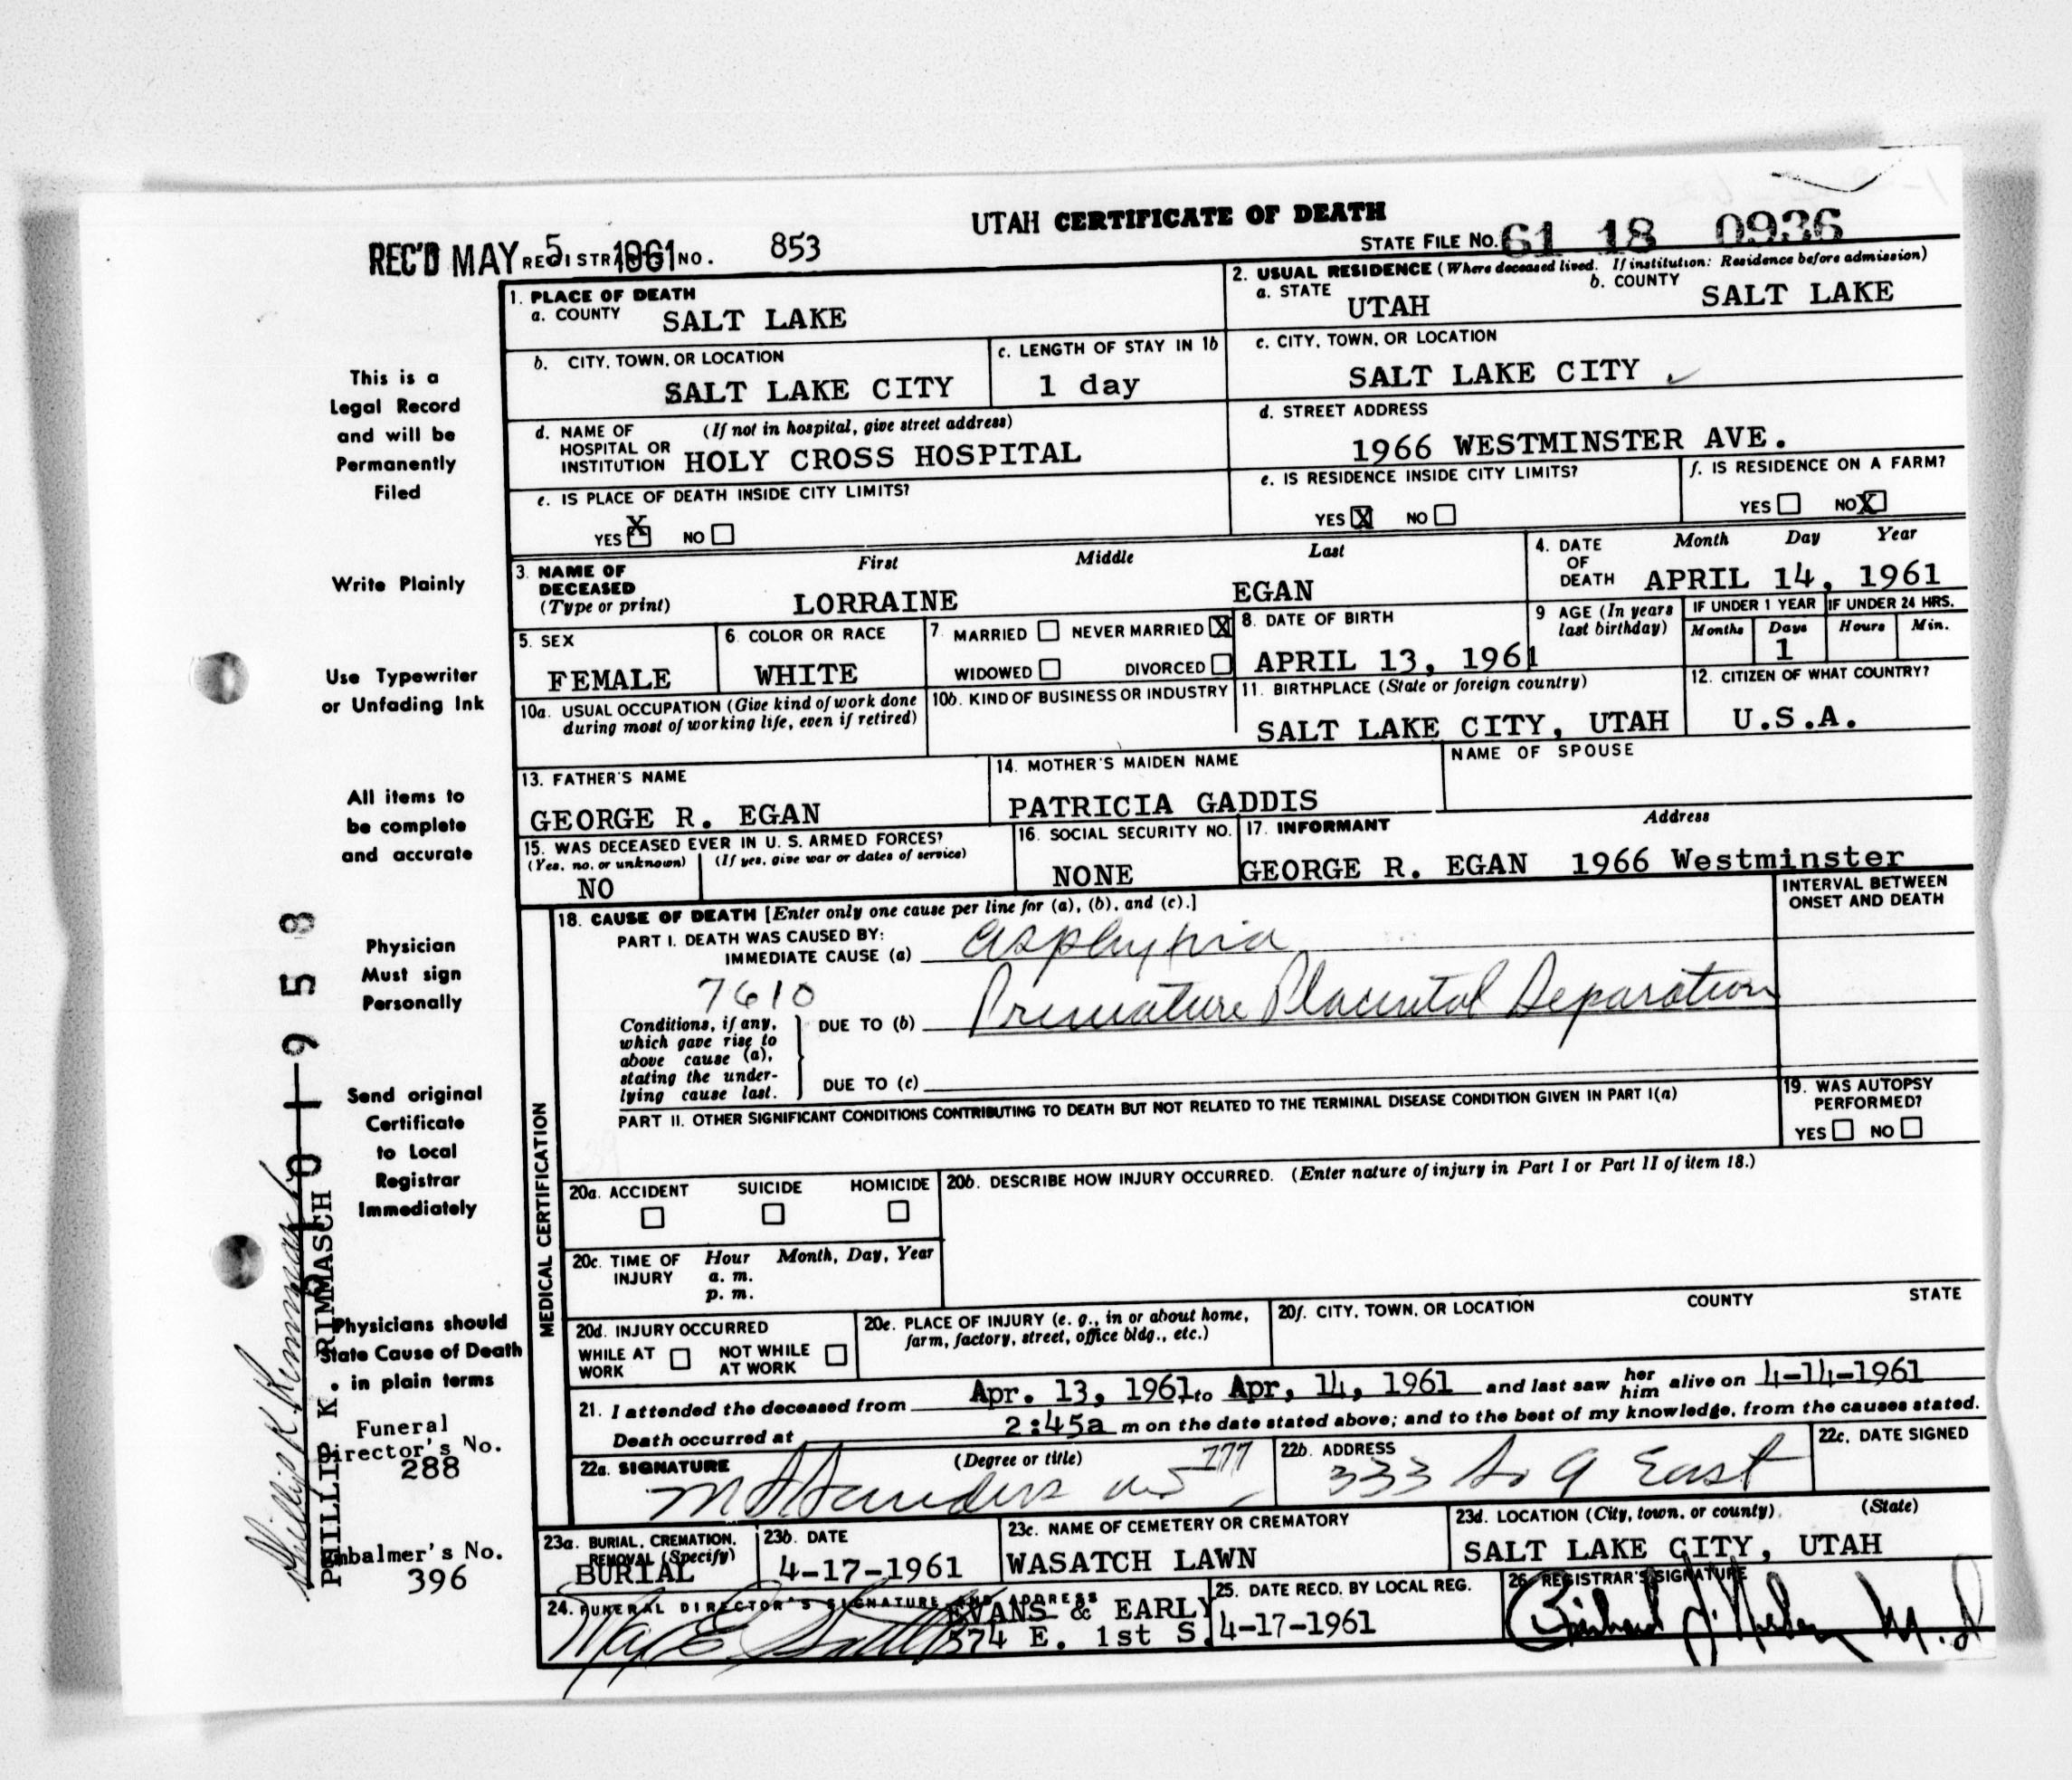 UTAH CERTIFICATE OF DEATH
REC'D MAY 5 1961 REGISTRAR'S NO. 853
STATE FILE NO. 61 18 0936
1. PLACE OF DEATH
a. COUNTY SALT LAKE
2. USUAL RESIDENCE (Where deceased lived. If institution: Residence before admission)
a. STATE UTAH b. COUNTY SALT LAKE
b. CITY, TOWN, OR LOCATION SALT LAKE CITY
c. LENGTH OF STAY IN 1b 1 day
c. CITY, TOWN, OR LOCATION SALT LAKE CITY
d. NAME OF HOSPITAL OR INSTITUTION (If not in hospital, give street address) HOLY CROSS HOSPITAL
d. STREET ADDRESS 1966 WESTMINSTER AVE.
e. IS PLACE OF DEATH INSIDE CITY LIMITS?
YES X NO
e. IS RESIDENCE INSIDE CITY LIMITS?
YES X NO
f. IS RESIDENCE ON A FARM?
YES NO X
3. NAME OF DECEASED (Type or print) First Middle Last
LORRAINE EGAN
4. DATE OF DEATH Month Day Year
APRIL 14, 1961
5. SEX FEMALE
6. COLOR OR RACE WHITE
7. MARRIED NEVER MARRIED X
WIDOWED DIVORCED
8. DATE OF BIRTH APRIL 13, 1961
9 AGE (In years last birthday)
IF UNDER 1 YEAR IF UNDER 24 HRS.
Months Days Hours Min.
1
10a. USUAL OCCUPATION (Give kind of work done during most of working life, even if retired)
10b. KIND OF BUSINESS OR INDUSTRY
11. BIRTHPLACE (State or foreign country) SALT LAKE CITY, UTAH
12. CITIZEN OF WHAT COUNTRY? U.S.A.
13. FATHER'S NAME GEORGE R. EGAN
14. MOTHER'S MAIDEN NAME PATRICIA GADDIS
NAME OF SPOUSE
15. WAS DECEASED EVER IN U. S. ARMED FORCES?
(Yes, no, or unknown) (If yes, give war or dates of service)
NO
16. SOCIAL SECURITY NO. NONE
17. INFORMANT Address
GEORGE R. EGAN 1966 Westminster
MEDICAL CERTIFICATION
18. CAUSE OF DEATH [Enter only one cause per line for (a), (b), and (c).]
INTERVAL BETWEEN ONSET AND DEATH
PART I. DEATH WAS CAUSED BY:
IMMEDIATE CAUSE (a) asphyxia
7610
Conditions, if any, which gave rise to above cause (a), stating the underlying cause last.
DUE TO (b) Premature Placental Separation
DUE TO (c)
PART II. OTHER SIGNIFICANT CONDITIONS CONTRIBUTING TO DEATH BUT NOT RELATED TO THE TERMINAL DISEASE CONDITION GIVEN IN PART I(a)
19. WAS AUTOPSY PERFORMED?
YES NO
20a. ACCIDENT SUICIDE HOMICIDE
20b. DESCRIBE HOW INJURY OCCURRED. (Enter nature of injury in Part I or Part II of item 18.)
20c. TIME OF INJURY Hour Month, Day, Year
a. m.
p. m.
20d. INJURY OCCURRED
WHILE AT WORK NOT WHILE AT WORK
20e. PLACE OF INJURY (e. g., in or about home, farm, factory, street, office bldg., etc.)
20f. CITY, TOWN, OR LOCATION COUNTY STATE
21. I attended the deceased from Apr. 13, 1961 to Apr, 14, 1961 and last saw her him alive on 4-14-1961
Death occurred at 2:45a m on the date stated above; and to the best of my knowledge, from the causes stated.
22a. SIGNATURE (Degree or title)
22b. ADDRESS 333 So 9 East
22c. DATE SIGNED
23a. BURIAL, CREMATION, REMOVAL (Specify) BURIAL
23b. DATE 4-17-1961
23c. NAME OF CEMETERY OR CREMATORY WASATCH LAWN
23d. LOCATION (City, town, or county) (State)
SALT LAKE CITY, UTAH
24. FUNERAL DIRECTOR'S SIGNATURE AND ADDRESS
EVANS & EARLY
574 E. 1st S.
25. DATE RECD. BY LOCAL REG. 4-17-1961
26. REGISTRAR'S SIGNATURE
This is a
Legal Record
and will be
Permanently
Filed
Write Plainly
Use Typewriter
or Unfading Ink
All items to
be complete
and accurate
Physician
Must sign
Personally
Send original
Certificate
to Local
Registrar
Immediately
Physicians should
State Cause of Death
in plain terms
Funeral
Director's No.
288
Embalmer's No.
396
PHILLIP K. RIMMASCH